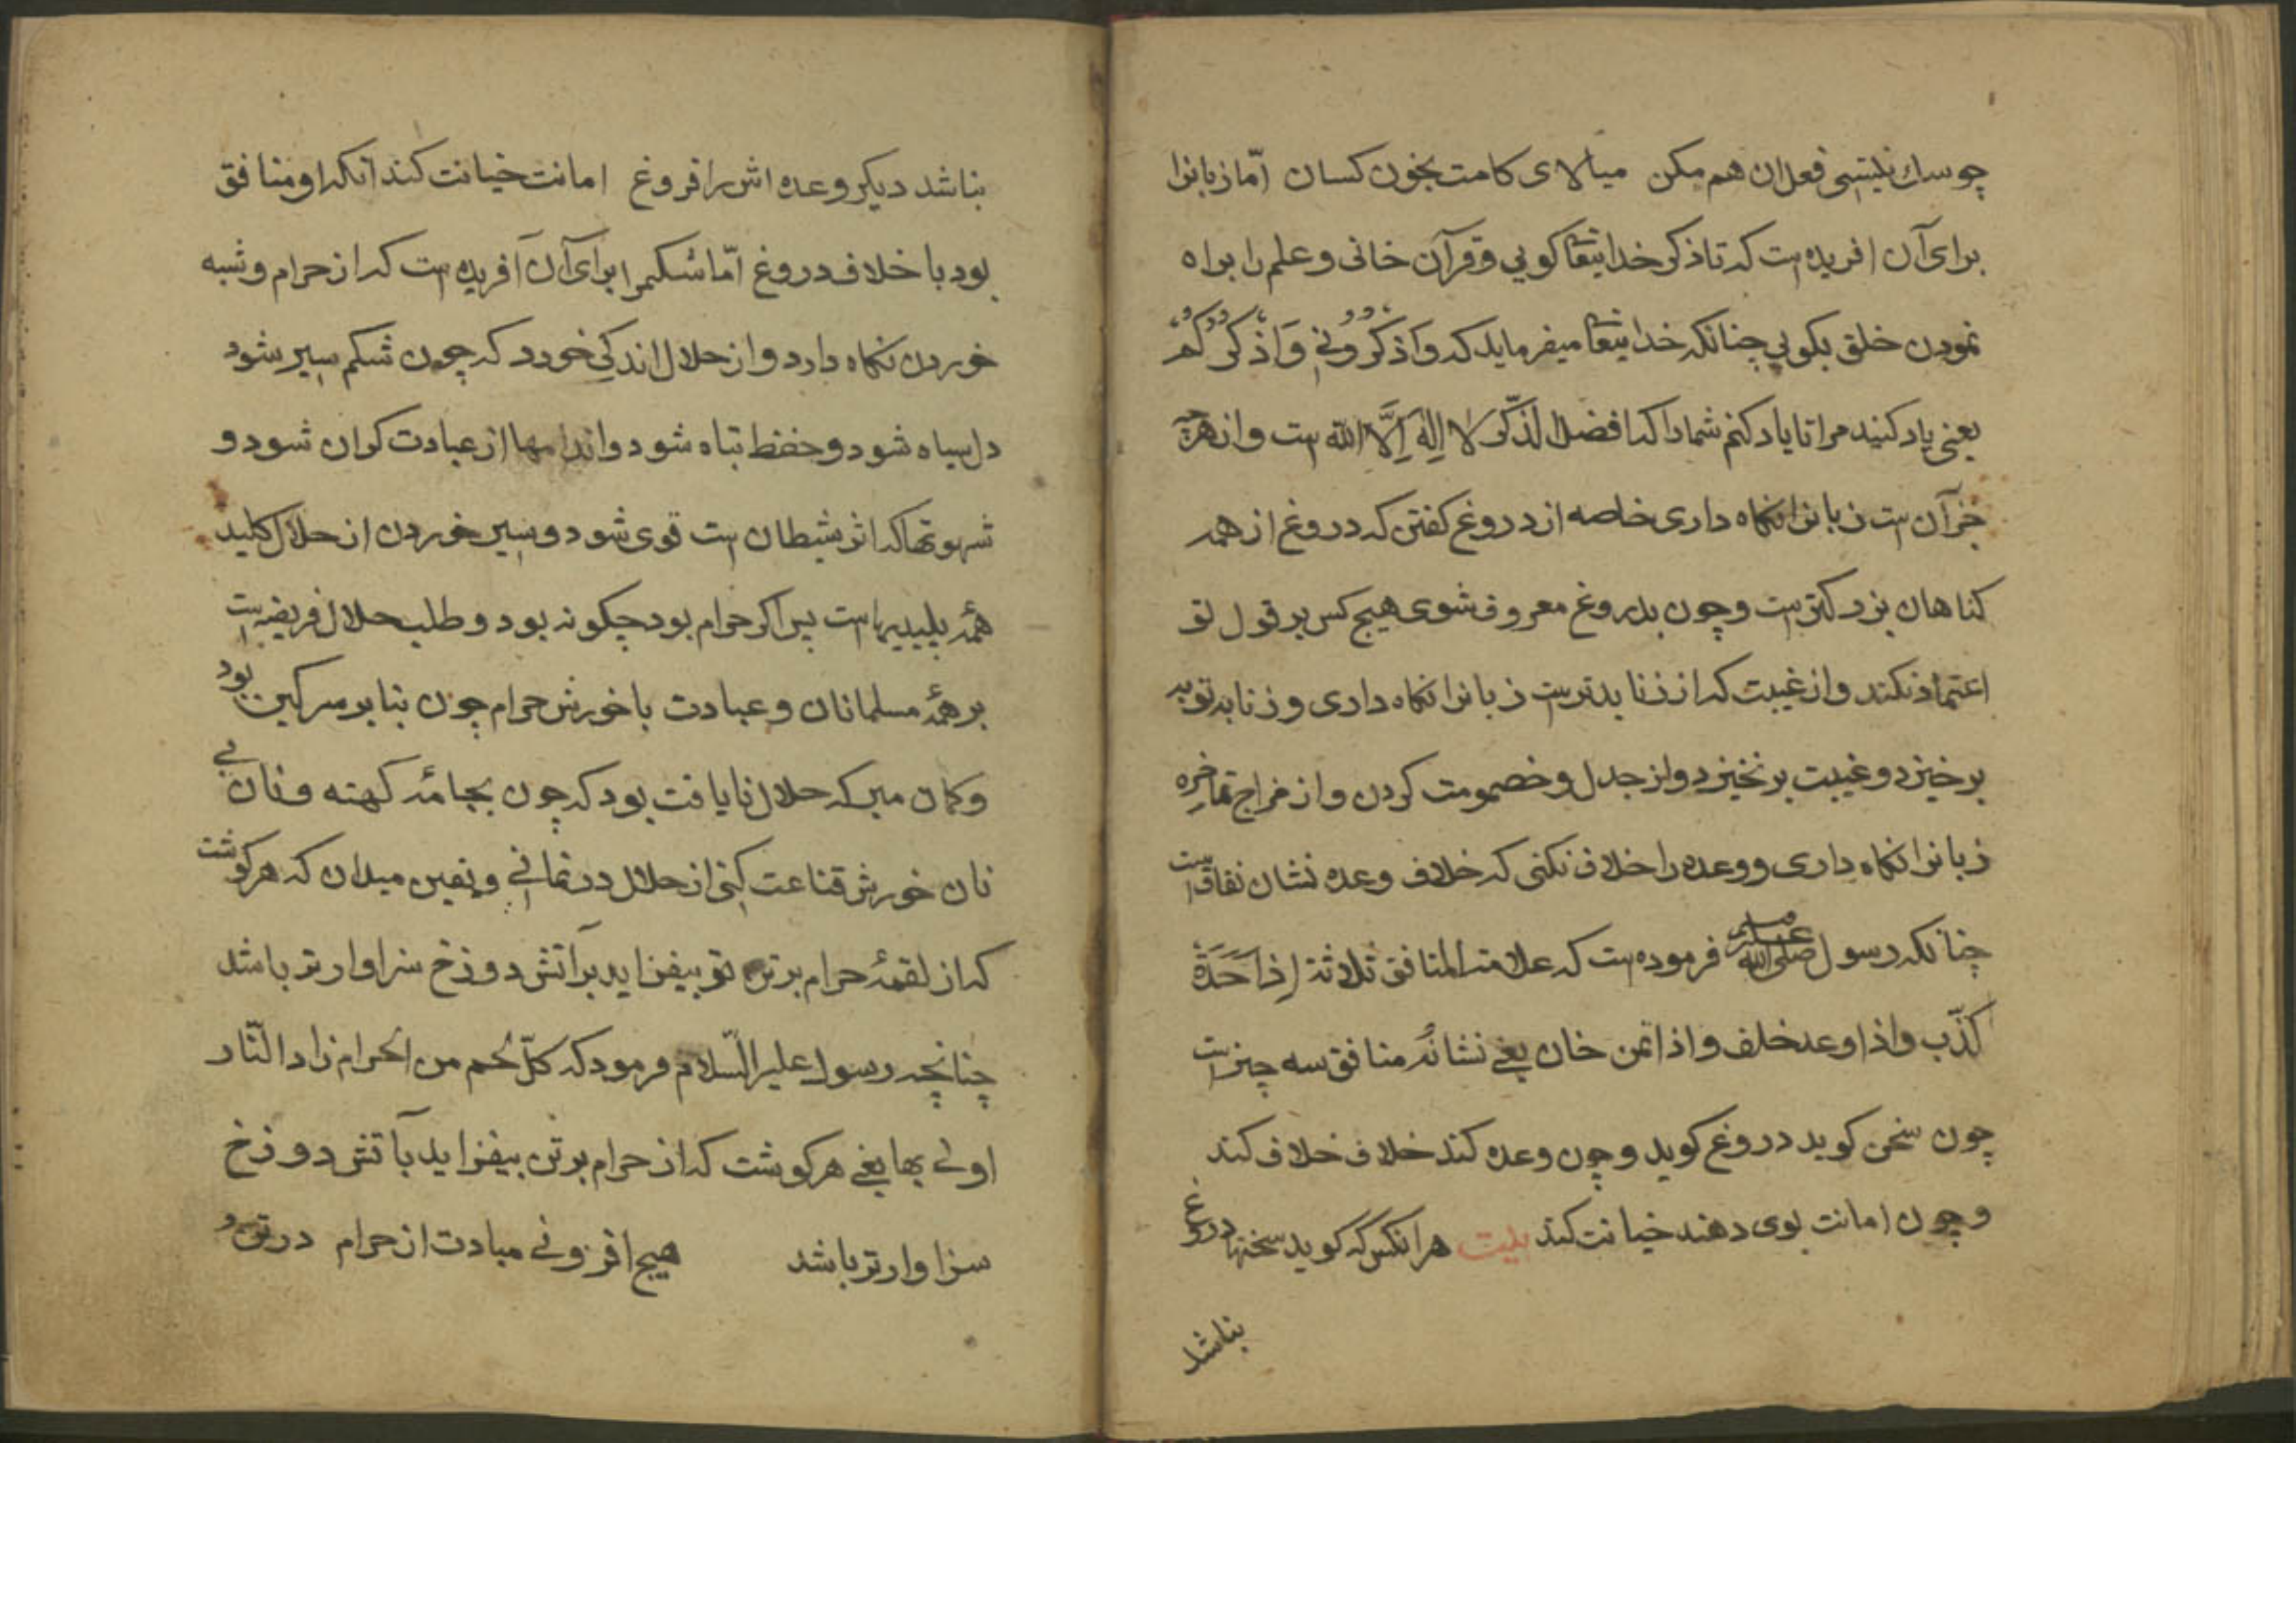 چو سك نیستی فعل ان هم مکن میالای کامت بخون کسان امّا زبانرا
برای آن افریده است که تا ذکر خدایتعا کویی و قرآن خانی و علم را براه
نمودن خلق بکویی چنانکه خدایتعا میفرماید که واذْکُرُونِی وَاذْکُرْکُمْ
یعنی یاد کنید مرا تا یاد کنم شمارا که افضل الذّکر لا اِلٰهَ اِلَّا اللّه است و از هرچه
جز آن است زبانرا نکاه داری خاصه از دروغ کفتن که دروغ از همه
کناهان بزرکتر است و چون بدروغ معروف شوی هیچ کس بر قول تو
اعتماد نکند و از غیبت که از زنا بدتر است زبانرا نکاه داری و زنا به توبه
برخیزد و غیبت برنخیزد و از جدل و خصومت کردن و از مزاج
زبانرا نکاه داری و وعده را خلاف نکنی که خلاف وعده نشان نفاق است
چنانکه رسول صلی الله علیه وسلم فرموده است که علامة المنافق ثلاثة اِذَا حَدَثَ
کذّب واذا وعد خلف واذا اتمن خان یعنی نشانهٔ منافق سه چیز است
چون سخن کوید دروغ کوید و چون وعده کند خلاف خلاف کند
و چون امانت بوی دهند خیانت کند بیت هرانکس که کوید سخنها دروغ
بناشد
بناشد دیکر وعده اش را فروغ امانت خیانت کند انکه او منافق
بود با خلاف دروغ امّا شکمرا برای آن آفریده است که از حرام و شبه
خوردن نکاه دارد و از حلال اندکی خورد که چون شکم سیر شود
دل سیاه شود و حفظ تباه شود و اندامها از عبادت کران شود و
شهوتها که اثر شیطان است قوی شود و سیر خوردن از حلال کلید
همهٔ پلیدیها است پس اکر حرام بود چکونه بود و طلب حلال فریضه است
بر همهٔ مسلمانان و عبادت با خورش حرام چون بنا بر سرکین بود
و کمان مبر که حلال نایافت بود که چون بجامهٔ کهنه و نان بی
نان خورش قناعت کنی از حلال درنمانی و یقین میدان که هر کوشت
که از لقمهٔ حرام بر تن تو بیفزاید برآتش دوزخ سزاوارتر باشد
چنانچه رسول علیه السّلام فرمود که کلّ لحم من الحرام زاد النّار
اولی بها یعنی هر کوشت که از حرام بر تن بیفزاید بآتش دوزخ
سزاوارتر باشد هیچ افزونی مبادت از حرام در تن و